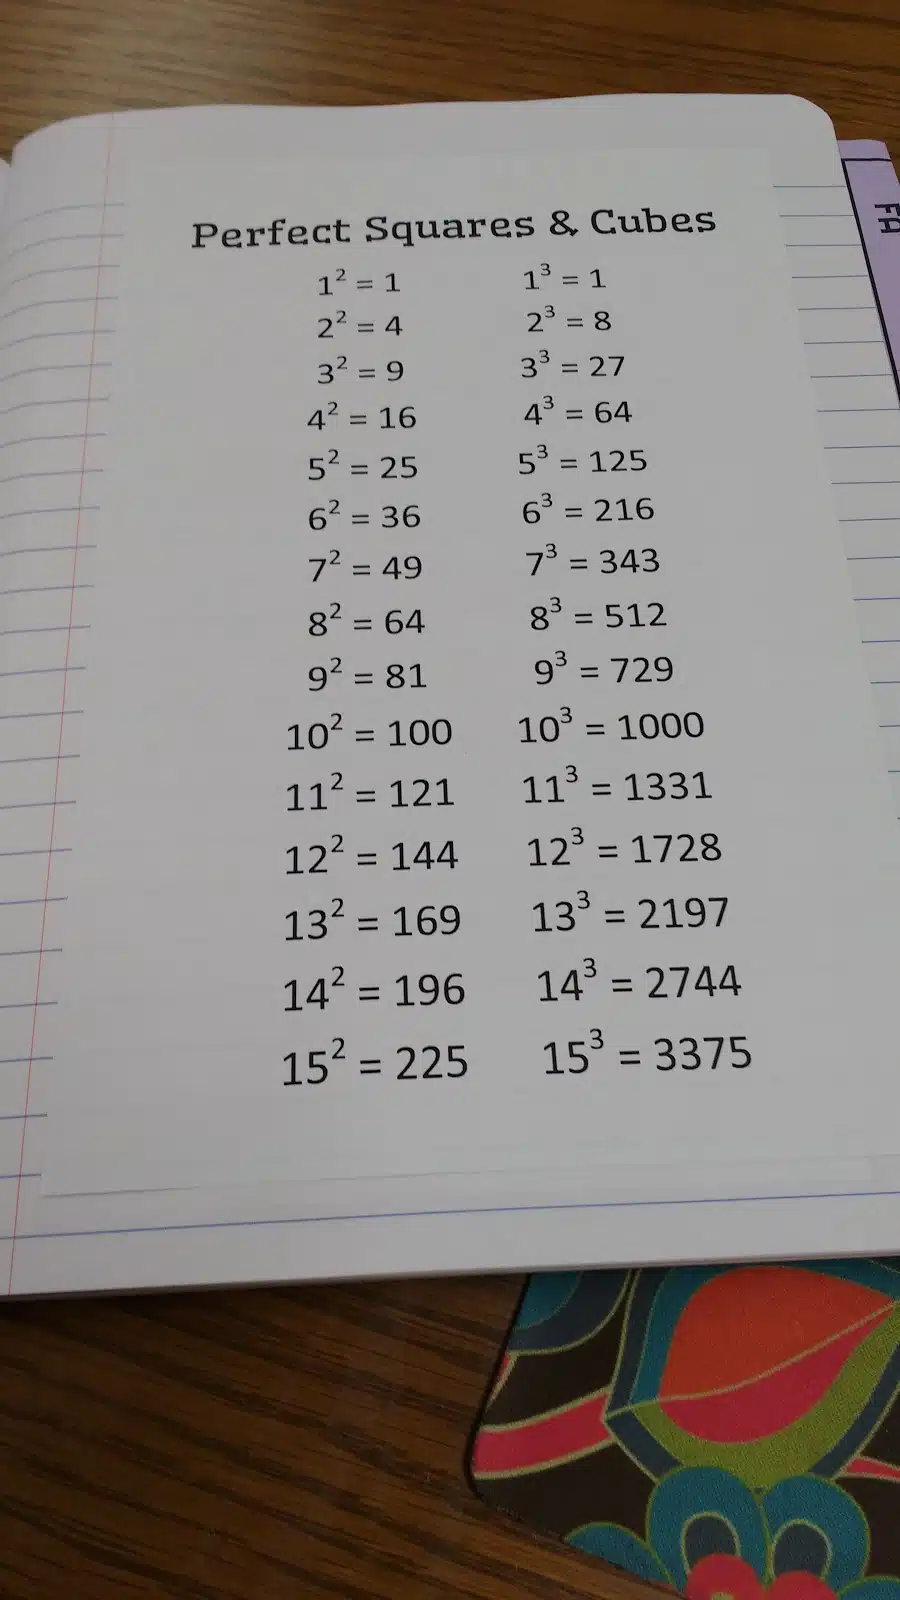 Perfect Squares & Cubes
1² = 1 1³ = 1
2² = 4 2³ = 8
3² = 9 3³ = 27
4² = 16 4³ = 64
5² = 25 5³ = 125
6² = 36 6³ = 216
7² = 49 7³ = 343
8² = 64 8³ = 512
9² = 81 9³ = 729
10² = 100 10³ = 1000
11² = 121 11³ = 1331
12² = 144 12³ = 1728
13² = 169 13³ = 2197
14² = 196 14³ = 2744
15² = 225 15³ = 3375